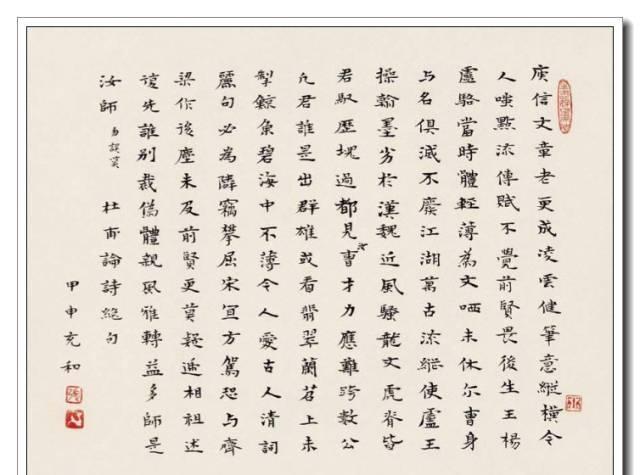 庾信文章老更成凌雲健筆意縱橫今
人嗤點流傳賦不覺前賢畏後生王楊
盧駱當時體輕薄為文哂未休尔曹身
与名俱滅不廢江湖萬古流縱使盧王
操翰墨劣於漢魏近風騷龍文虎脊皆
君馭歷塊過都見曹才力應難跨數公
凡君誰是出群雄或看翡翠蘭苕上未
掣鯨魚碧海中不薄今人愛古人清詞
麗句必為隣竊攀屈宋宜方駕恐与齊
梁作後塵未及前賢更莫疑遞相祖述
復先誰別裁偽體親風雅轉益多師是
汝師 誤莫 杜甫論詩絕句
甲申充和